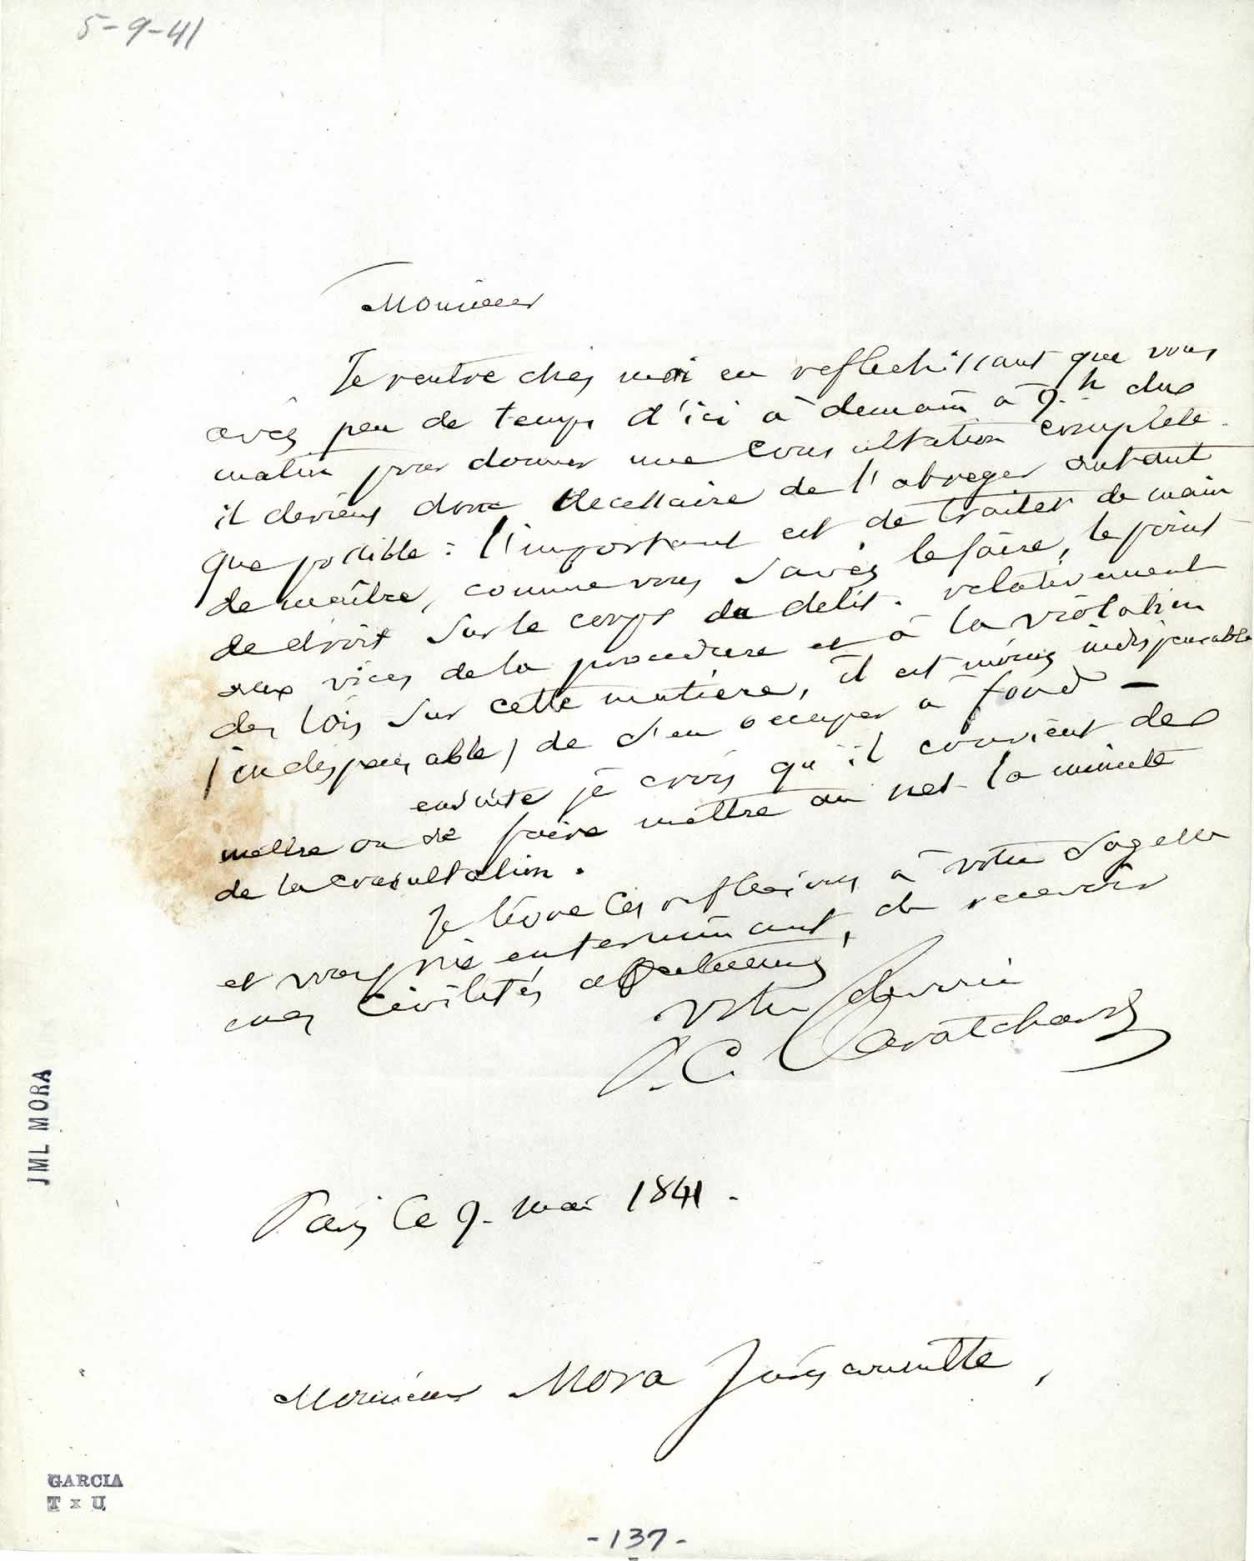 5-9-41
Monsieur
Je rentre chez moi en reflechissant que vous
avés peu de temps d'ici à demain à 9.h du
matin pour donner une consultation complète.
il deviens donc necessaire de l'abreger autant
que possible : l'important est de traiter de main
de maître, comme vous savés le faire, le point
de droit sur le corps du delit. relativement
aux vices de la procedure et à la violation
des lois sur cette matière, il est moins indispensable
(indispensable) de s'en occuper à fond —
ensuite je crois qu'il convient de
mettre ou de faire mettre au net la minute
de la consultation.
Je livre ces reflexions à votre sagesse
et vous prie en terminant, de recevoir
mes civilités
votre
P. C.
Paris Ce 9. mai 1841.
Monsieur Mora Jurisconsulte,
JML MORA
GARCIA
T x U
-137-